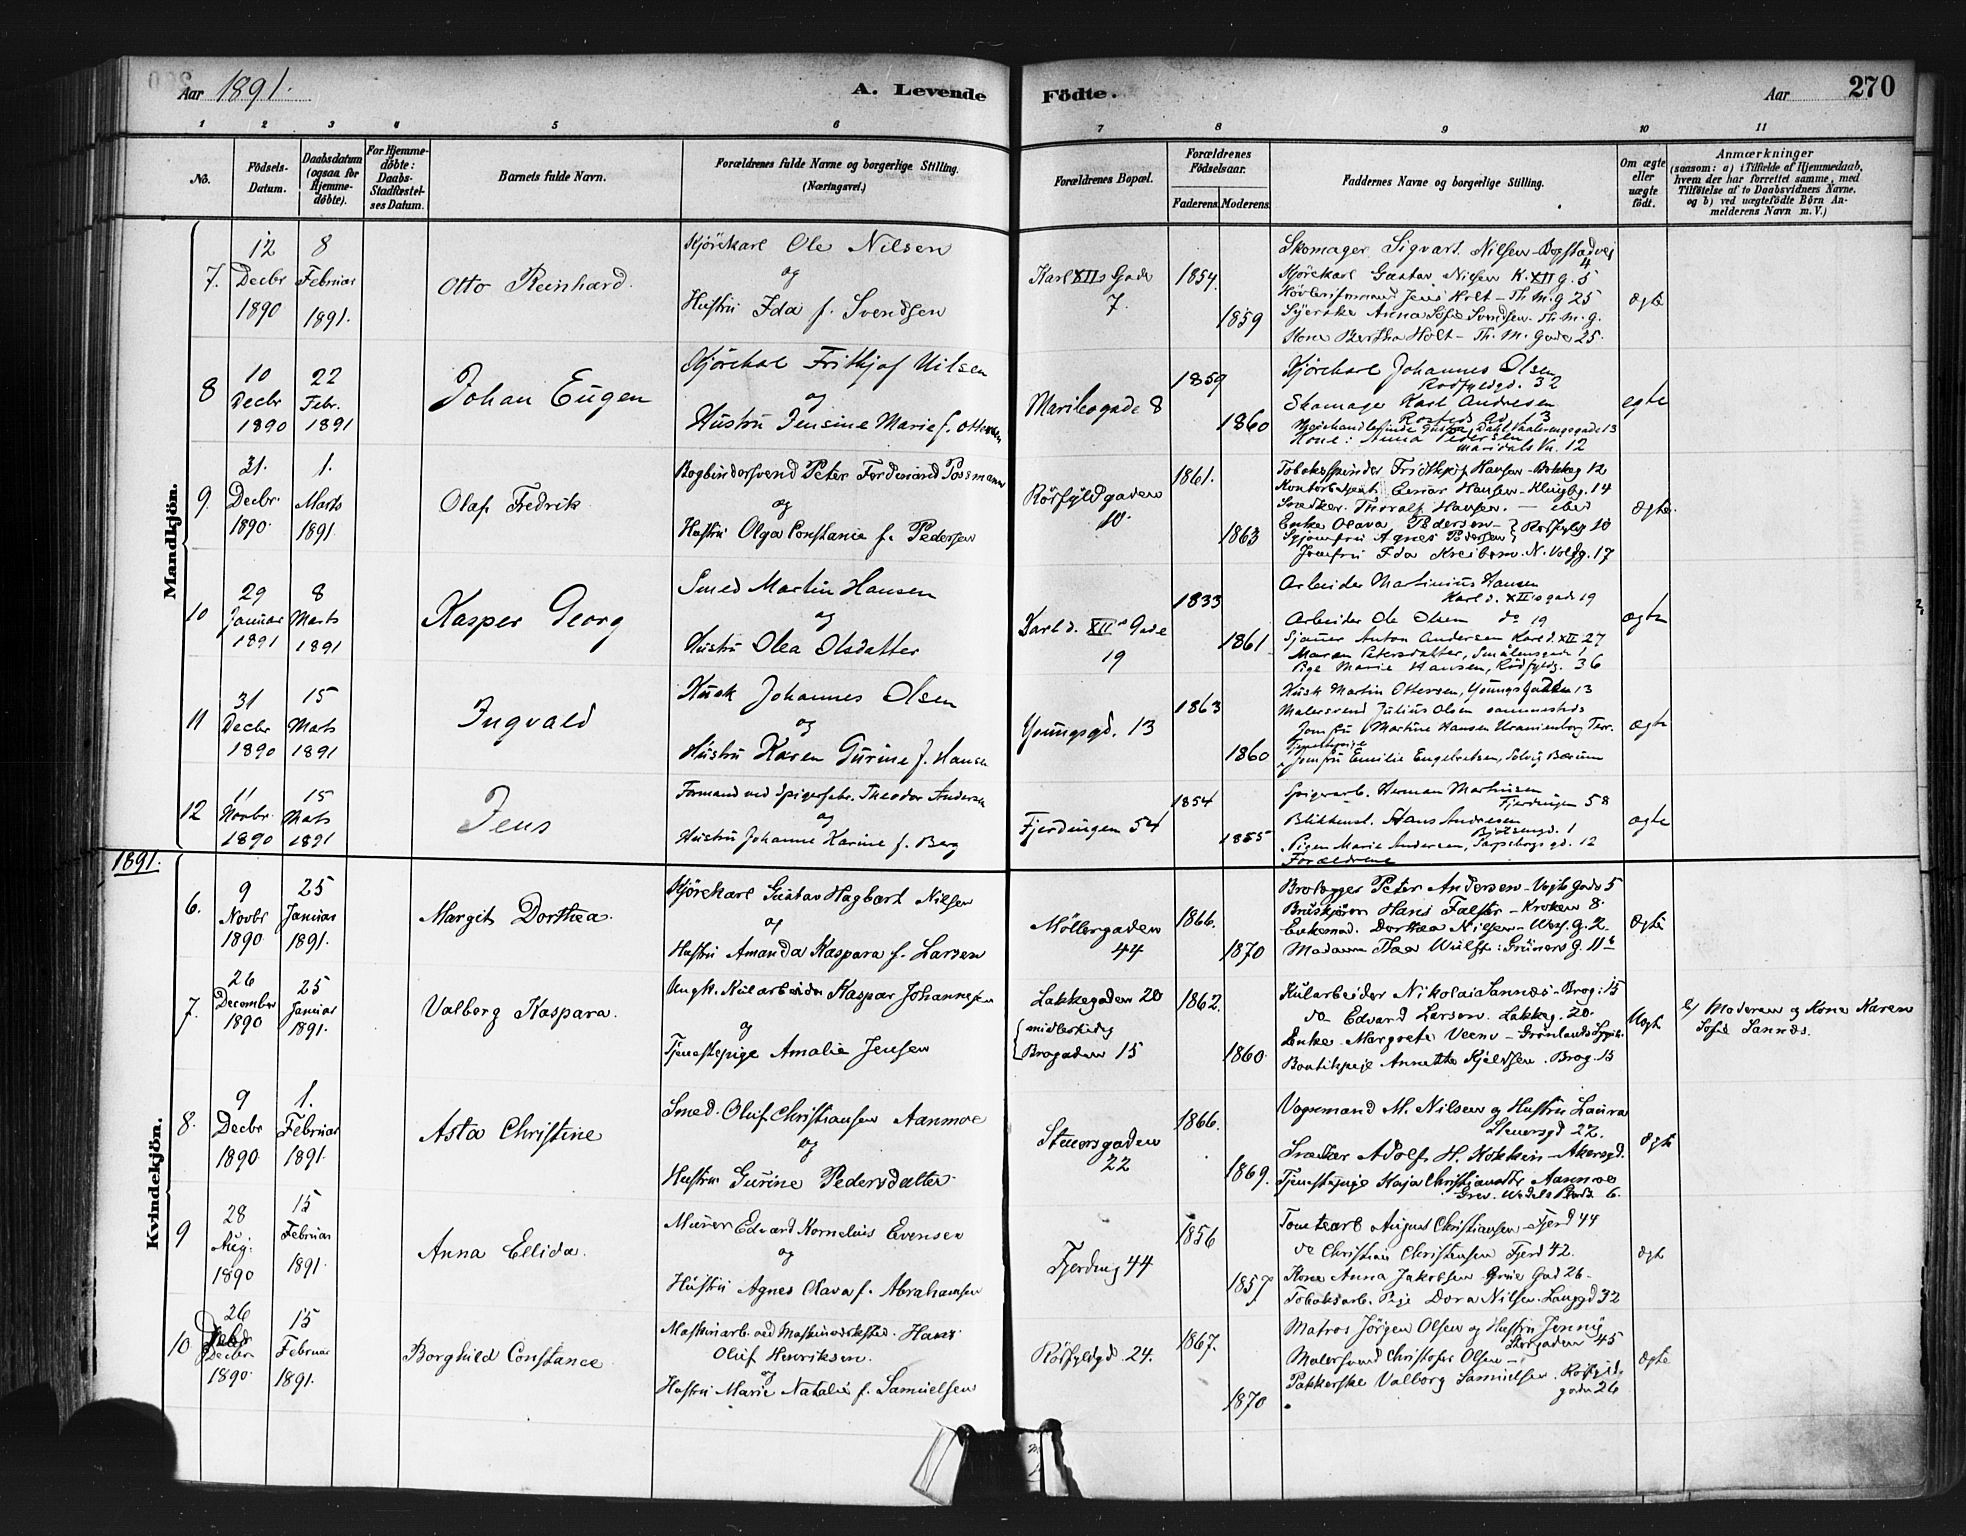 Aar 1891.
A. Levende Födte.
Aar
270
1 2 3 4 5 6 7 8 9 10 11
No.
Födsels-Datum.
Daabsdatum (ogsaa for Hjemme-döbte).
For Hjemme-döbte: Daabs-Stadfæstel-ses Datum.
Barnets fulde Navn.
Forældrenes fulde Navne og borgerlige Stilling. (Næringsvei.)
Forældrenes Bopæl.
Forældrenes Födselsaar.
Faderens. Moderens.
Faddernes Navne og borgerlige Stilling.
Om ægte eller uægte födt.
Anmærkninger
(saasom: a) i Tilfælde af Hjemmedaab, hvem der har forrettet samme, med Tilföielse af to Daabsvidners Navne, og b) ved uægtefödte Börn An-melderens Navn m. V.)
Mandkjön.
7. 12 Decbr 1890
8 Februar 1891.
Otto Reinhard.
Kjörekarl Ole Nilsen
og
Hustru Ida f. Svendsen
Karl XIIs Gade 7.
1854.
1859
Skomager Sigvart Nilsen - Bogstadvei 4
Kjörekarl Gustav Nilsen K. XII g. 5
Jens Holt - Th. M. g 25
Syerske Anna Sofie Svendsen. Th. M. g.
Kone Bertha Holt - Th. M. Gade 25.
Ægte
8 10 Decbr 1890
22 Febr. 1891
Johan Eugen
Kjörekarl Frithjof Nilsen
og
Hustru Jensine Marie f. Ottersen
Mariboegade 8
1859
1860
Kjörekarl Johannes Olsen
Rödfyldgd. 32
Skomager Karl Andresen
13
Kone: Anna Pedersen
Maridals Vn. 12
egte
9. 31. Decbr. 1890
1. Marts 1891
Olaf Fredrik.
Bogbindersvend Peter Ferdinand Possmann
og
Hustru Olga Constanse f. Pedersen
Rörfyldgaden 10.
1861.
1863
Tobaksspinder Fridthjof Hansen - Bakkeg 12
Kontorbetjent Einar Hansen - Klingbg. 14
Snedker Thoralf Hansen. - ibid
Enke Olava Pedersen - Rörfyldg 10
Syjomfru Agnes Pedersen
Jomfru Ida Kreibom. N. Voldg. 17
Ægte.
10 29 Januar 1891
8 Marts 1891
Kasper Georg
Smed Martin Hansen
og
Hustru Olea Olsdatter
Karl d. XIIs Gade 19
1833
1861
Arbeider Martinius Hansen
Karl d. XIIs gade 19
Arbeider Ole Olsen do 19
Sjauer Anton Andersen Karl d. XII 27
Maren Petersdatter, Smålensgade 1
Pige Marie Hansen, Rödfyldg. 36
Ægte
11 31 Decbr 1890
15 Marts 1891
Ingvald
Kusk Johannes Olsen
og
Hustru Karen Gurine f. Hansen
Youngsgd. 13
1863
1860
Kusk Martin Ottersen, Youngs Gaden 13
Malersvend Julius Olsen sammesteds
Jomfru Martine Hansen Uranienborg Terr.
Tjenestepige
Jomfru Emilie Engebretsen, Solvig Bærum
Ægte
12 11 Novbr. 1890
15 Mats 1891
Jens
Formand ved Spigerfabr. Theodor Andersen
og
Hustru Johanne Karine f. Berg
Fjerdingen 54
1854
1855
Spigerarb. Herman Martinsen
Fjerdingen 58
Blikkensl. Hans Andresen
1
Pigen Marie Andersen, Sarpsborg gd. 12
Forældrene
Ægte
1891.
Kvindekjön.
6. 9 Novbr 1890
25 Januar 1891.
Margit Dorthea.
Kjörekarl Gustav Hagbart Nilsen
og
Hustru Amanda Kaspara f. Larsen
Möllergaden 44
1866.
1870
Brolægger Peter Andersen - Vogts Gade 5
Bruskjörer Hans Falster - Kroken 8.
Enkemad. Dorthea Nilsen - g. 2.
Madam Thea Wulff: Grüners g. 11b
Ægte
7. 26 December 1890
25 Januar 1891.
Valborg Kaspara.
Ungk. Kularbeider Kaspar Johannesen
og
Tjenestepige Amalie Jensen
Lakkegaden 20
midlertidig
Brogaden 15
1862.
1860.
Kularbeider Nikolai Sannæs - Brog. 15
do Edvard Larsen. Lakkeg. 20.
Enke Margrete Veenv - Grönlands
Boutikpige Annette Kjeldsen. Brog. 15
Uægte
b) Moderen og Kone Karen Sofie Sannæs.
8. 9 Decbr 1890
1. Februar 1891.
Asta Christine
Smed. Oluf Christiansen Aanmoe
og
Hustru Gurine Pedersdatter
Steuersgaden 22
1866.
1869.
Vognmand M. Nilsen og Hustru Laura
Steuersgd 22.
Snedker Adolf H. Kokkin - Akersgd.
Tjenestepige Kaja Christiansdtr Aanmoe
Grev. Wedels Plads 6.
Ægte
9 28 Aug. 1890
15 Februar 1891.
Anna Ellida.
Murer Edvard Kornelius Evensen
og
Hustru Agnes Olava f. Abrahamsen
Fjerding 44
1856
1857
August Christiansen - Fjerd 44
do Christian Christensen Fjerd 42.
Kone Anna Jakobsen Grue Gad 26.
Tobaksarb. Pige Dora Nilsen. Langgd 32
Ægte
10 26 Decbr 1890.
15 Februar 1891.
Borghild Constance
Maskinarb. ved Maskinverksted. Hans
Oluf Henriksen.
og
Hustru Marie Natalie f. Samuelsen
Rörfyldgd 24.
1867.
1870
Matros Jörgen Olsen og Hustru Jenny
Storgaden 45
Malersvend Christofer Olsen -
Pakkerske Valborg Samuelsen. Rörfyld-
gaden 26
Ægte